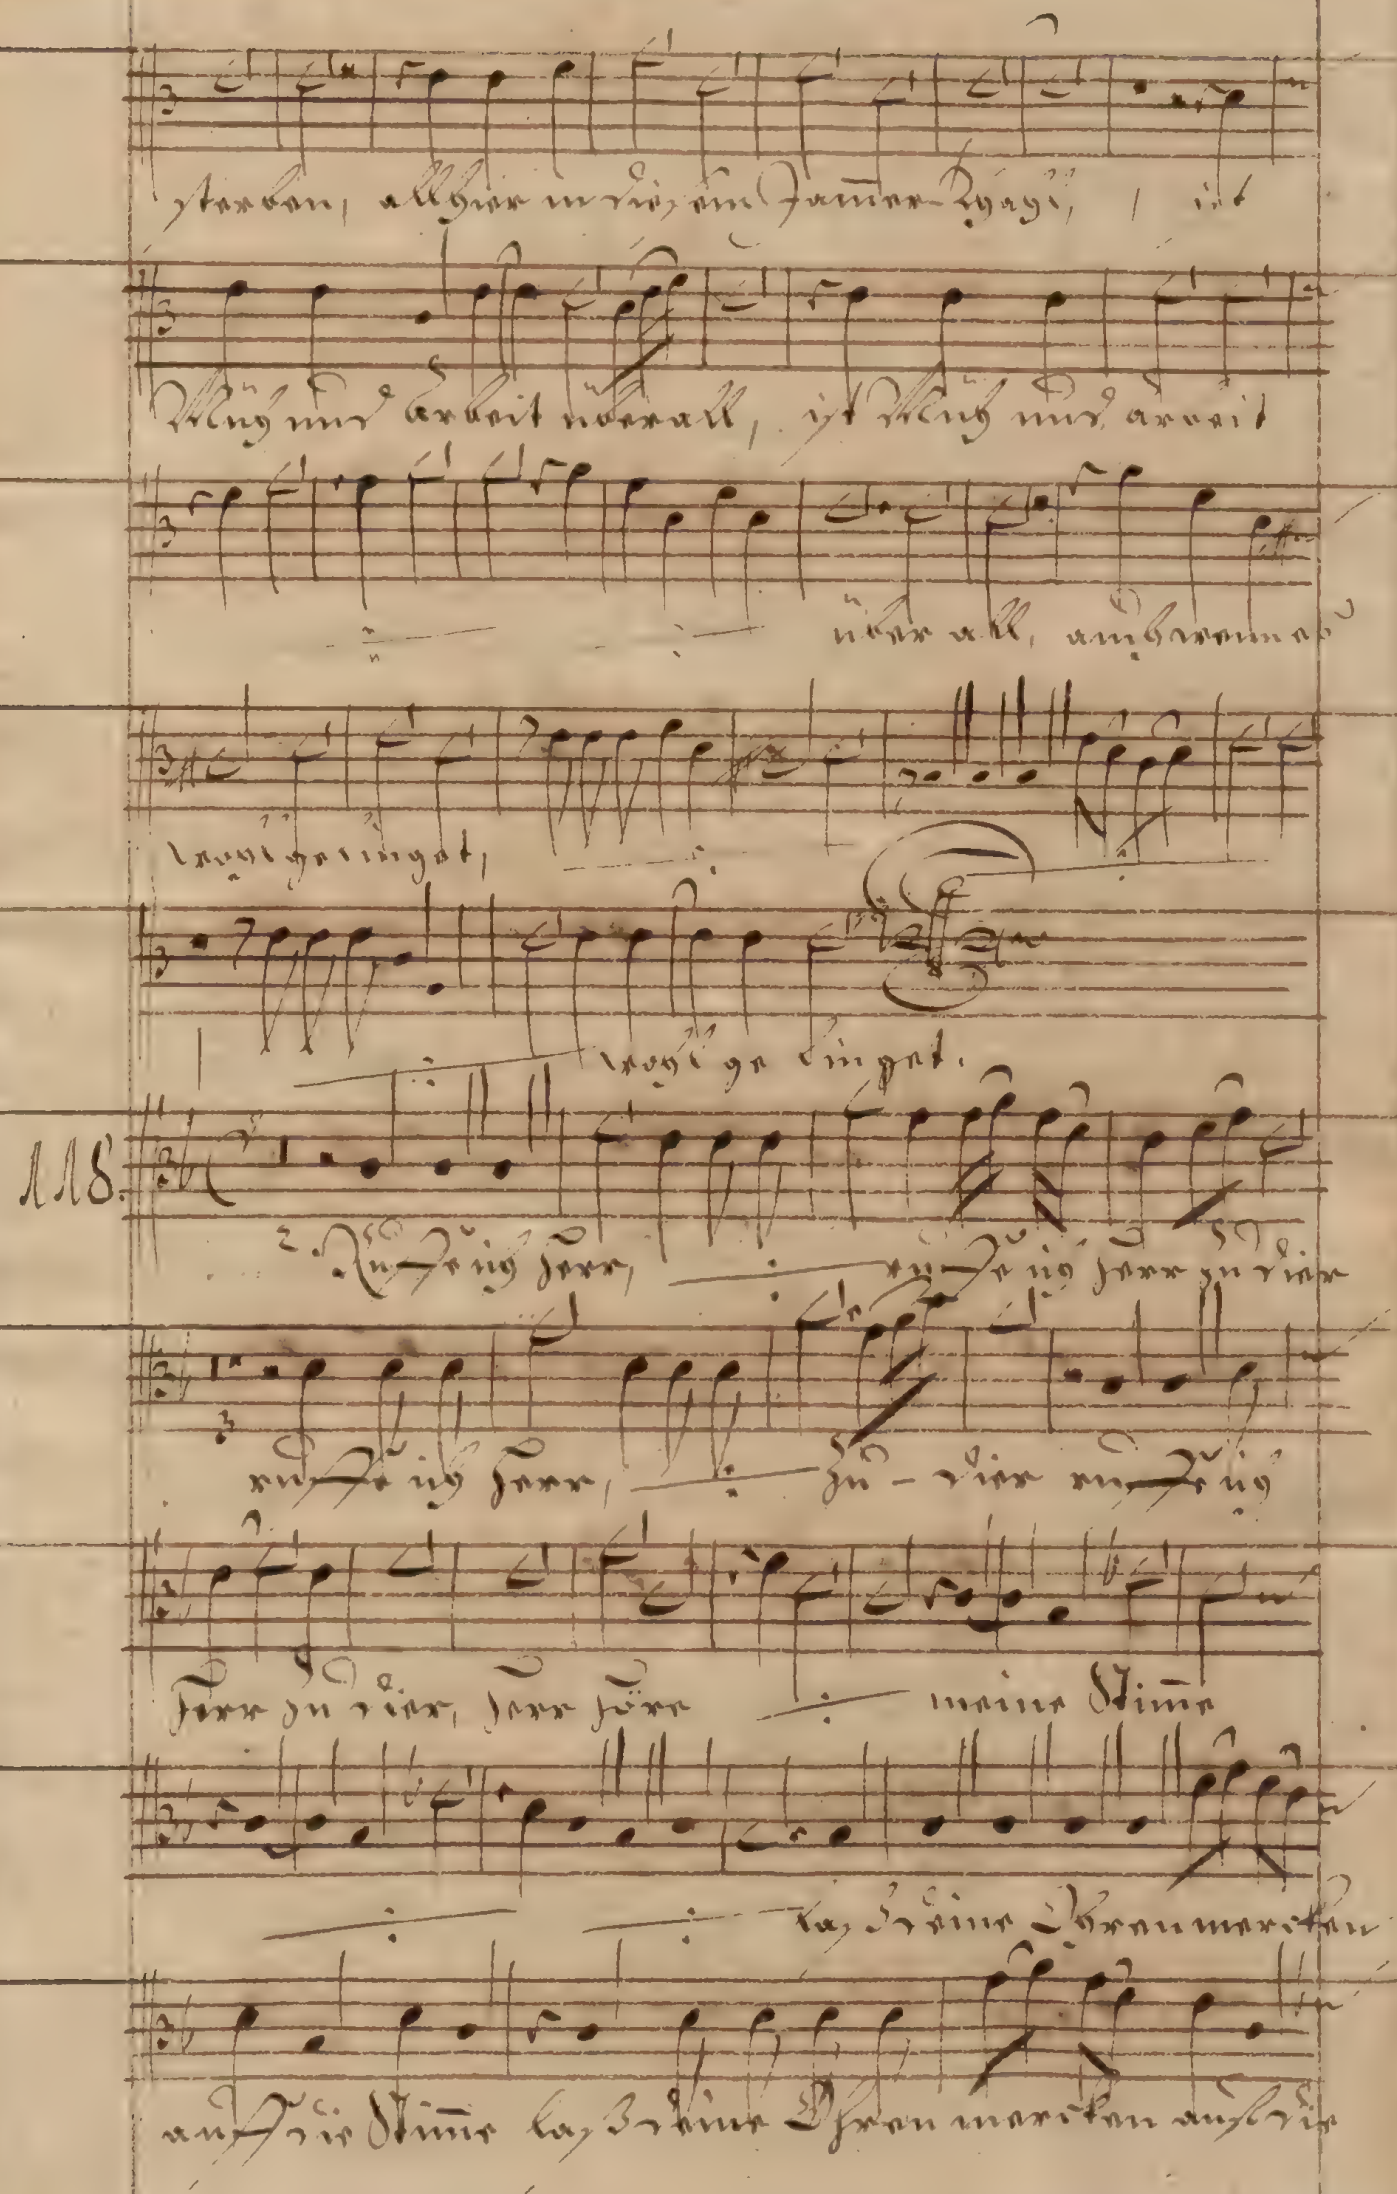 sterben, allhier in diesem Jam̄er-Thahl, ist
Müh und Arbeit überall, ist Müh und arbeit
über all, auch wenn es
wohl gelinget,
wohl ge linget.
118.
2. Ruffe ich Herr, ruffe ich Herr zu dier
ruffe ich Herr, zu - dier ruffe ich
Herr zu dier, Herr höre meine Stim̄e
laß deine Ohren mercken
auff die Stim̄e laß deine Ohren mercken auf die